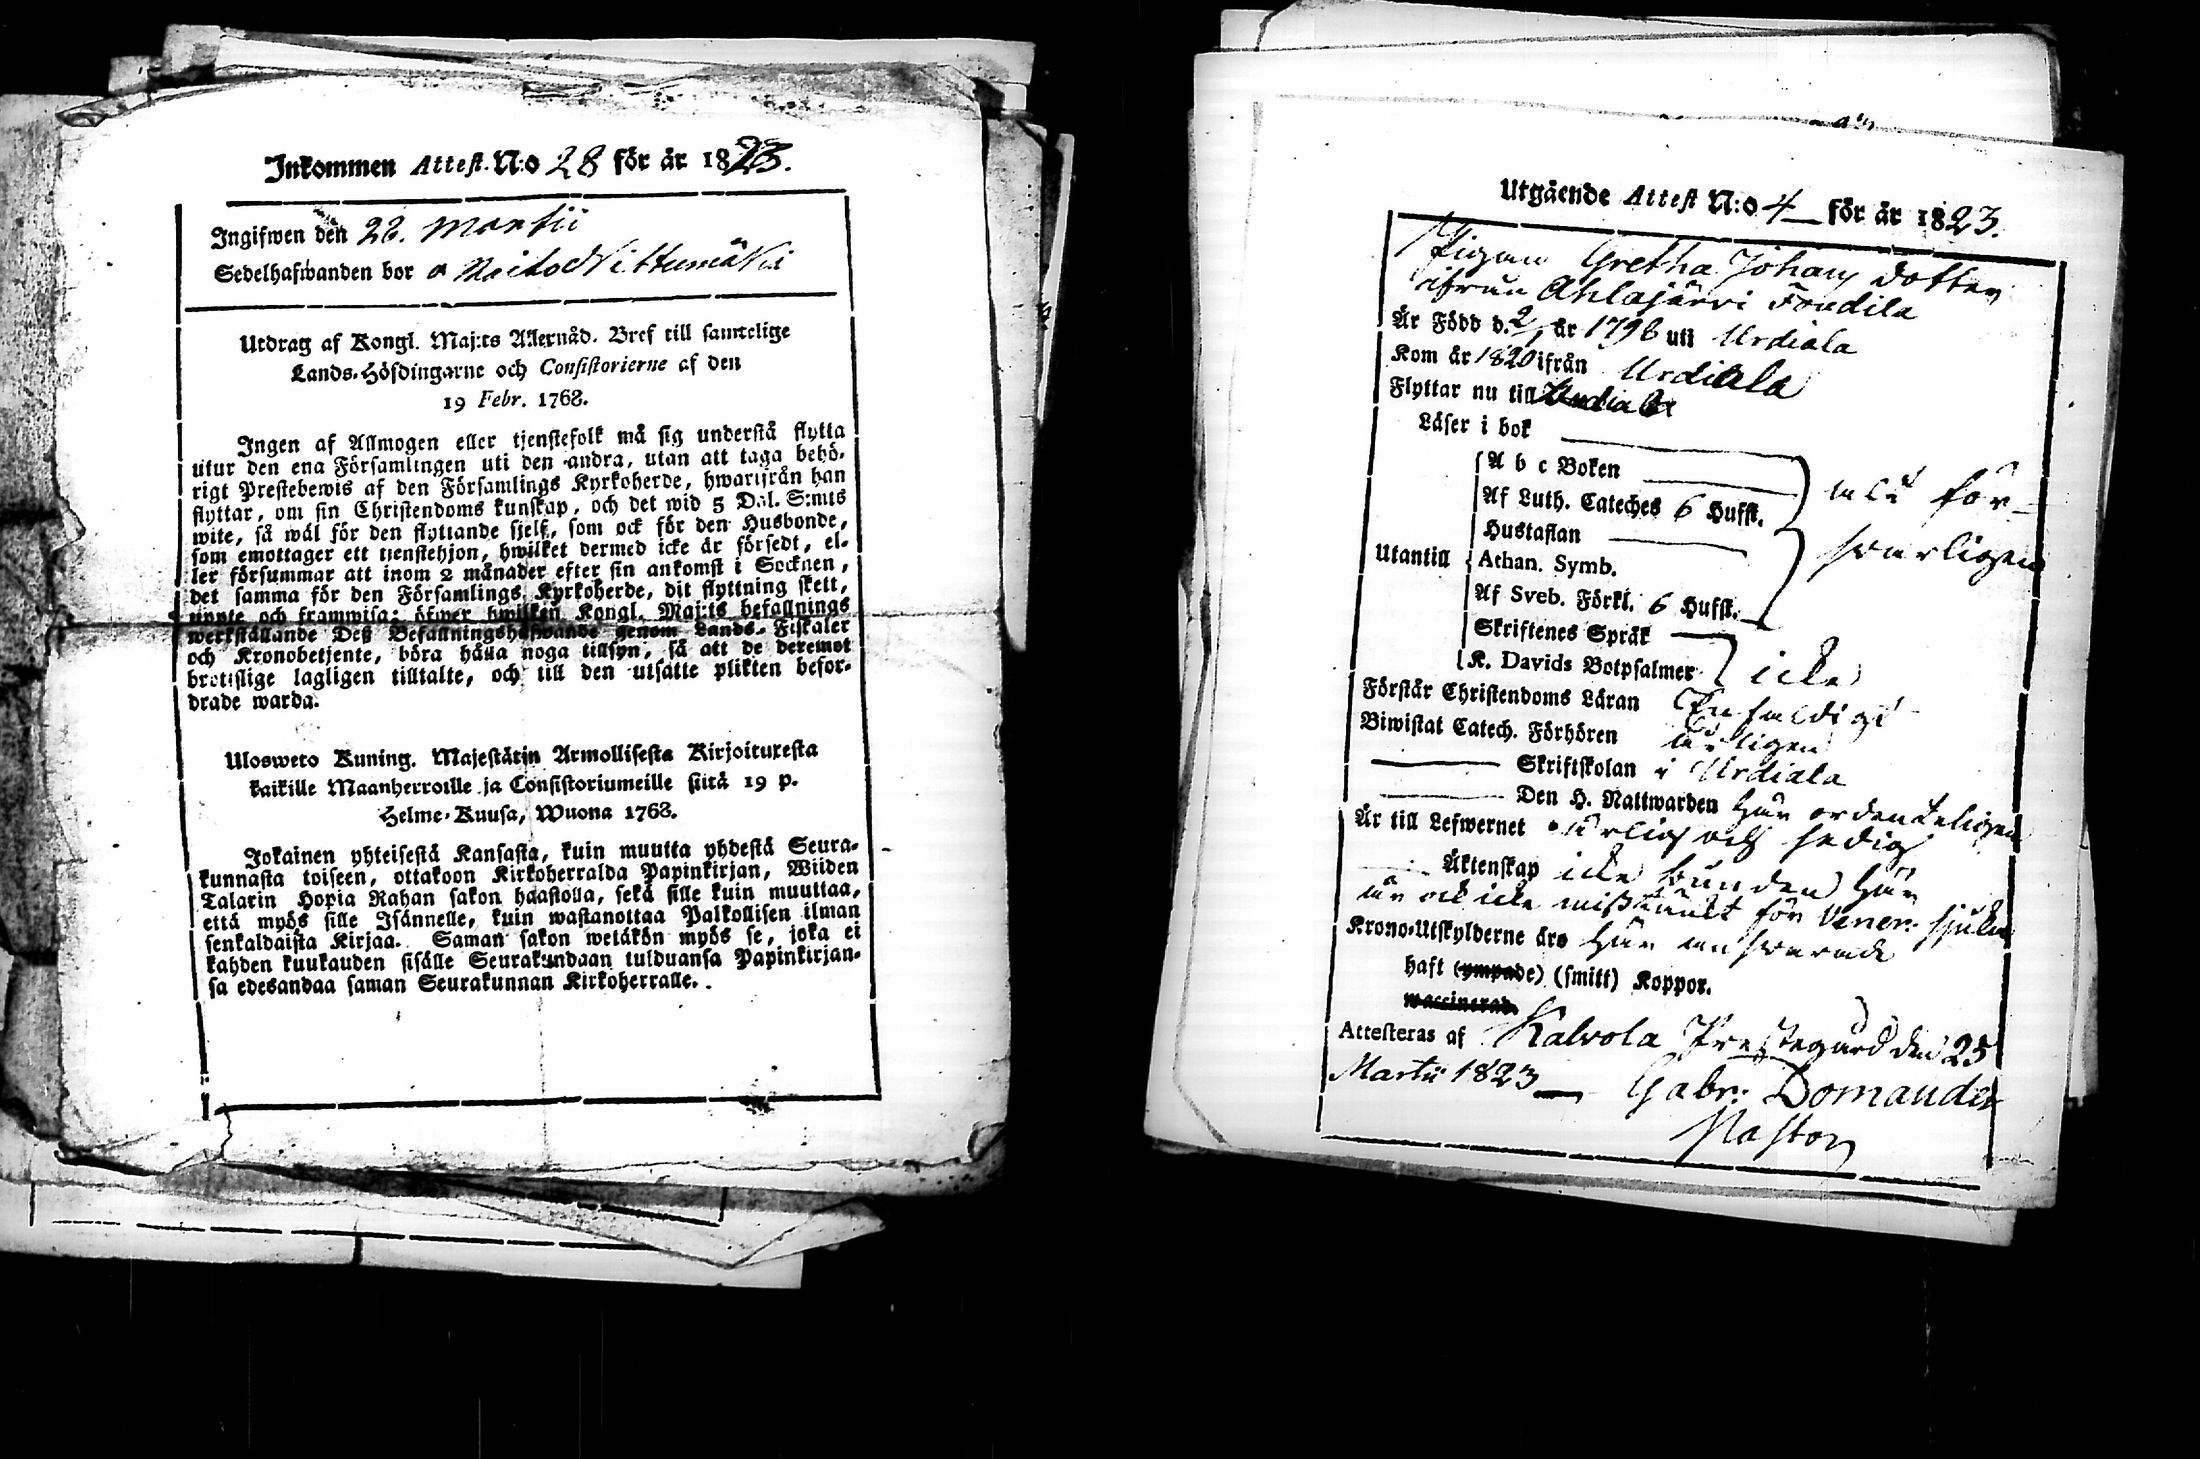 Inkommen Attest. N:o 28 för år 1823.
Ingifwen den 28. Martii
Sedelhafwanden bor
Utdrag af Kongl. Maj:ts Allernåd. Bref till samtelige
Lands-Höfdingarne och Consistorierne af den
19 Febr. 1768.
Ingen af Allmogen eller tjenstefolk må sig understå flytta
utur den ena Församlingen uti den andra, utan att taga behö-
rigt Prestebewis af den Församlings Kyrkoherde, hwarifrån han
flyttar, om sin Christendoms kunskap, och det wid 5 Dal. S:mts
wite, så wäl för den flyttande sjelf, som ock för den Husbonde,
som emottager ett tjenstehjon, hwilket dermed icke är försedt, el-
ler försummar att inom 2 månader efter sin ankomst i Socknen,
det samma för den Församlings Kyrkoherde, dit flyttning skett,
uppte och framwisa; öfwer hwilken Kongl. Maj:ts befallnings
werkställande Deß Befallningshafwande genom Lands-Fiskaler
och Kronobetjente, böra hålla noga tillsyn, så att de deremot
brottslige lagligen tilltalte, och till den utsatte plikten befor-
drade warda.
Ulosweto Kuning. Majestätin Armollisesta Kirjoituxesta
kaikille Maanherroille ja Consistoriumeille siitä 19 p.
Helme-Kuusa, Wuona 1768.
Jokainen yhteisestä Kansasta, kuin muutta yhdestä Seura-
kunnasta toiseen, ottakoon Kirkoherralda Papinkirjan, Wiiden
Talarin Hopia Rahan sakon haastolla, sekä sille kuin muuttaa,
että myös sille Isännelle, kuin wastanottaa Palkollisen ilman
senkaldaista Kirjaa. Saman sakon wetäkön myös se, joka ei
kahden kuukauden sisälle Seurakundaan tulduansa Papinkirjan-
sa edesandaa saman Seurakunnan Kirkoherralle.
Utgående Attest N:o 4 för år 1823.
Pigan Gretha Johans dotter
ifrån Ahlajärvi Fondila
Är Född d. 2/ år 1796 uti Urdiala
Kom år 1820 ifrån Urdiala
Flyttar nu till Urdiala
Läser i bok
A b c Boken
Af Luth. Cateches 6 Hufst.
Hustaflan
Utantill Athan. Symb.
Af Sveb. Förkl. 6 Hufst.
Skriftenes Språk
K. Davids Botpsalmer
allt för-
svarligen
icke
Förstår Christendoms Läran Enfaldigt
Biwistat Catech. Förhören årligen
Skriftskolan i Urdiala
Den H. Nattwarden här ordenteligen
Är till Lefwernet ärlig och sedig
Äktenskap icke bunden här
är ock icke mißtänkt för Vener. sjukan
Krono-Utskylderne äro här ansvarade
haft (ympade) (smitt) Koppor.
waccinerad.
Attesteras af Kalvola Prestegård den 25
Martii 1823 Gabr: Domander
Pastor